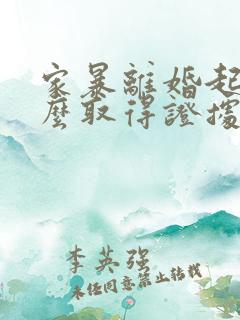 家暴離婚起
麼取得證據
李英强
未经同意禁止转载